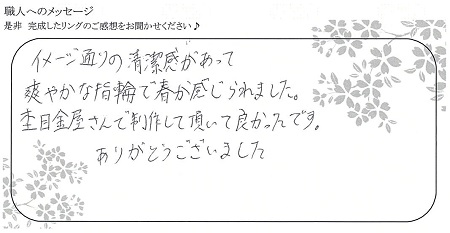 職人へのメッセージ
是非 完成したリングのご感想をお聞かせください♪
イメージ通りの清潔感があって
爽やかな指輪で春が感じられました。
杢目金屋さんで制作して頂いて良かったです。
ありがとうございました